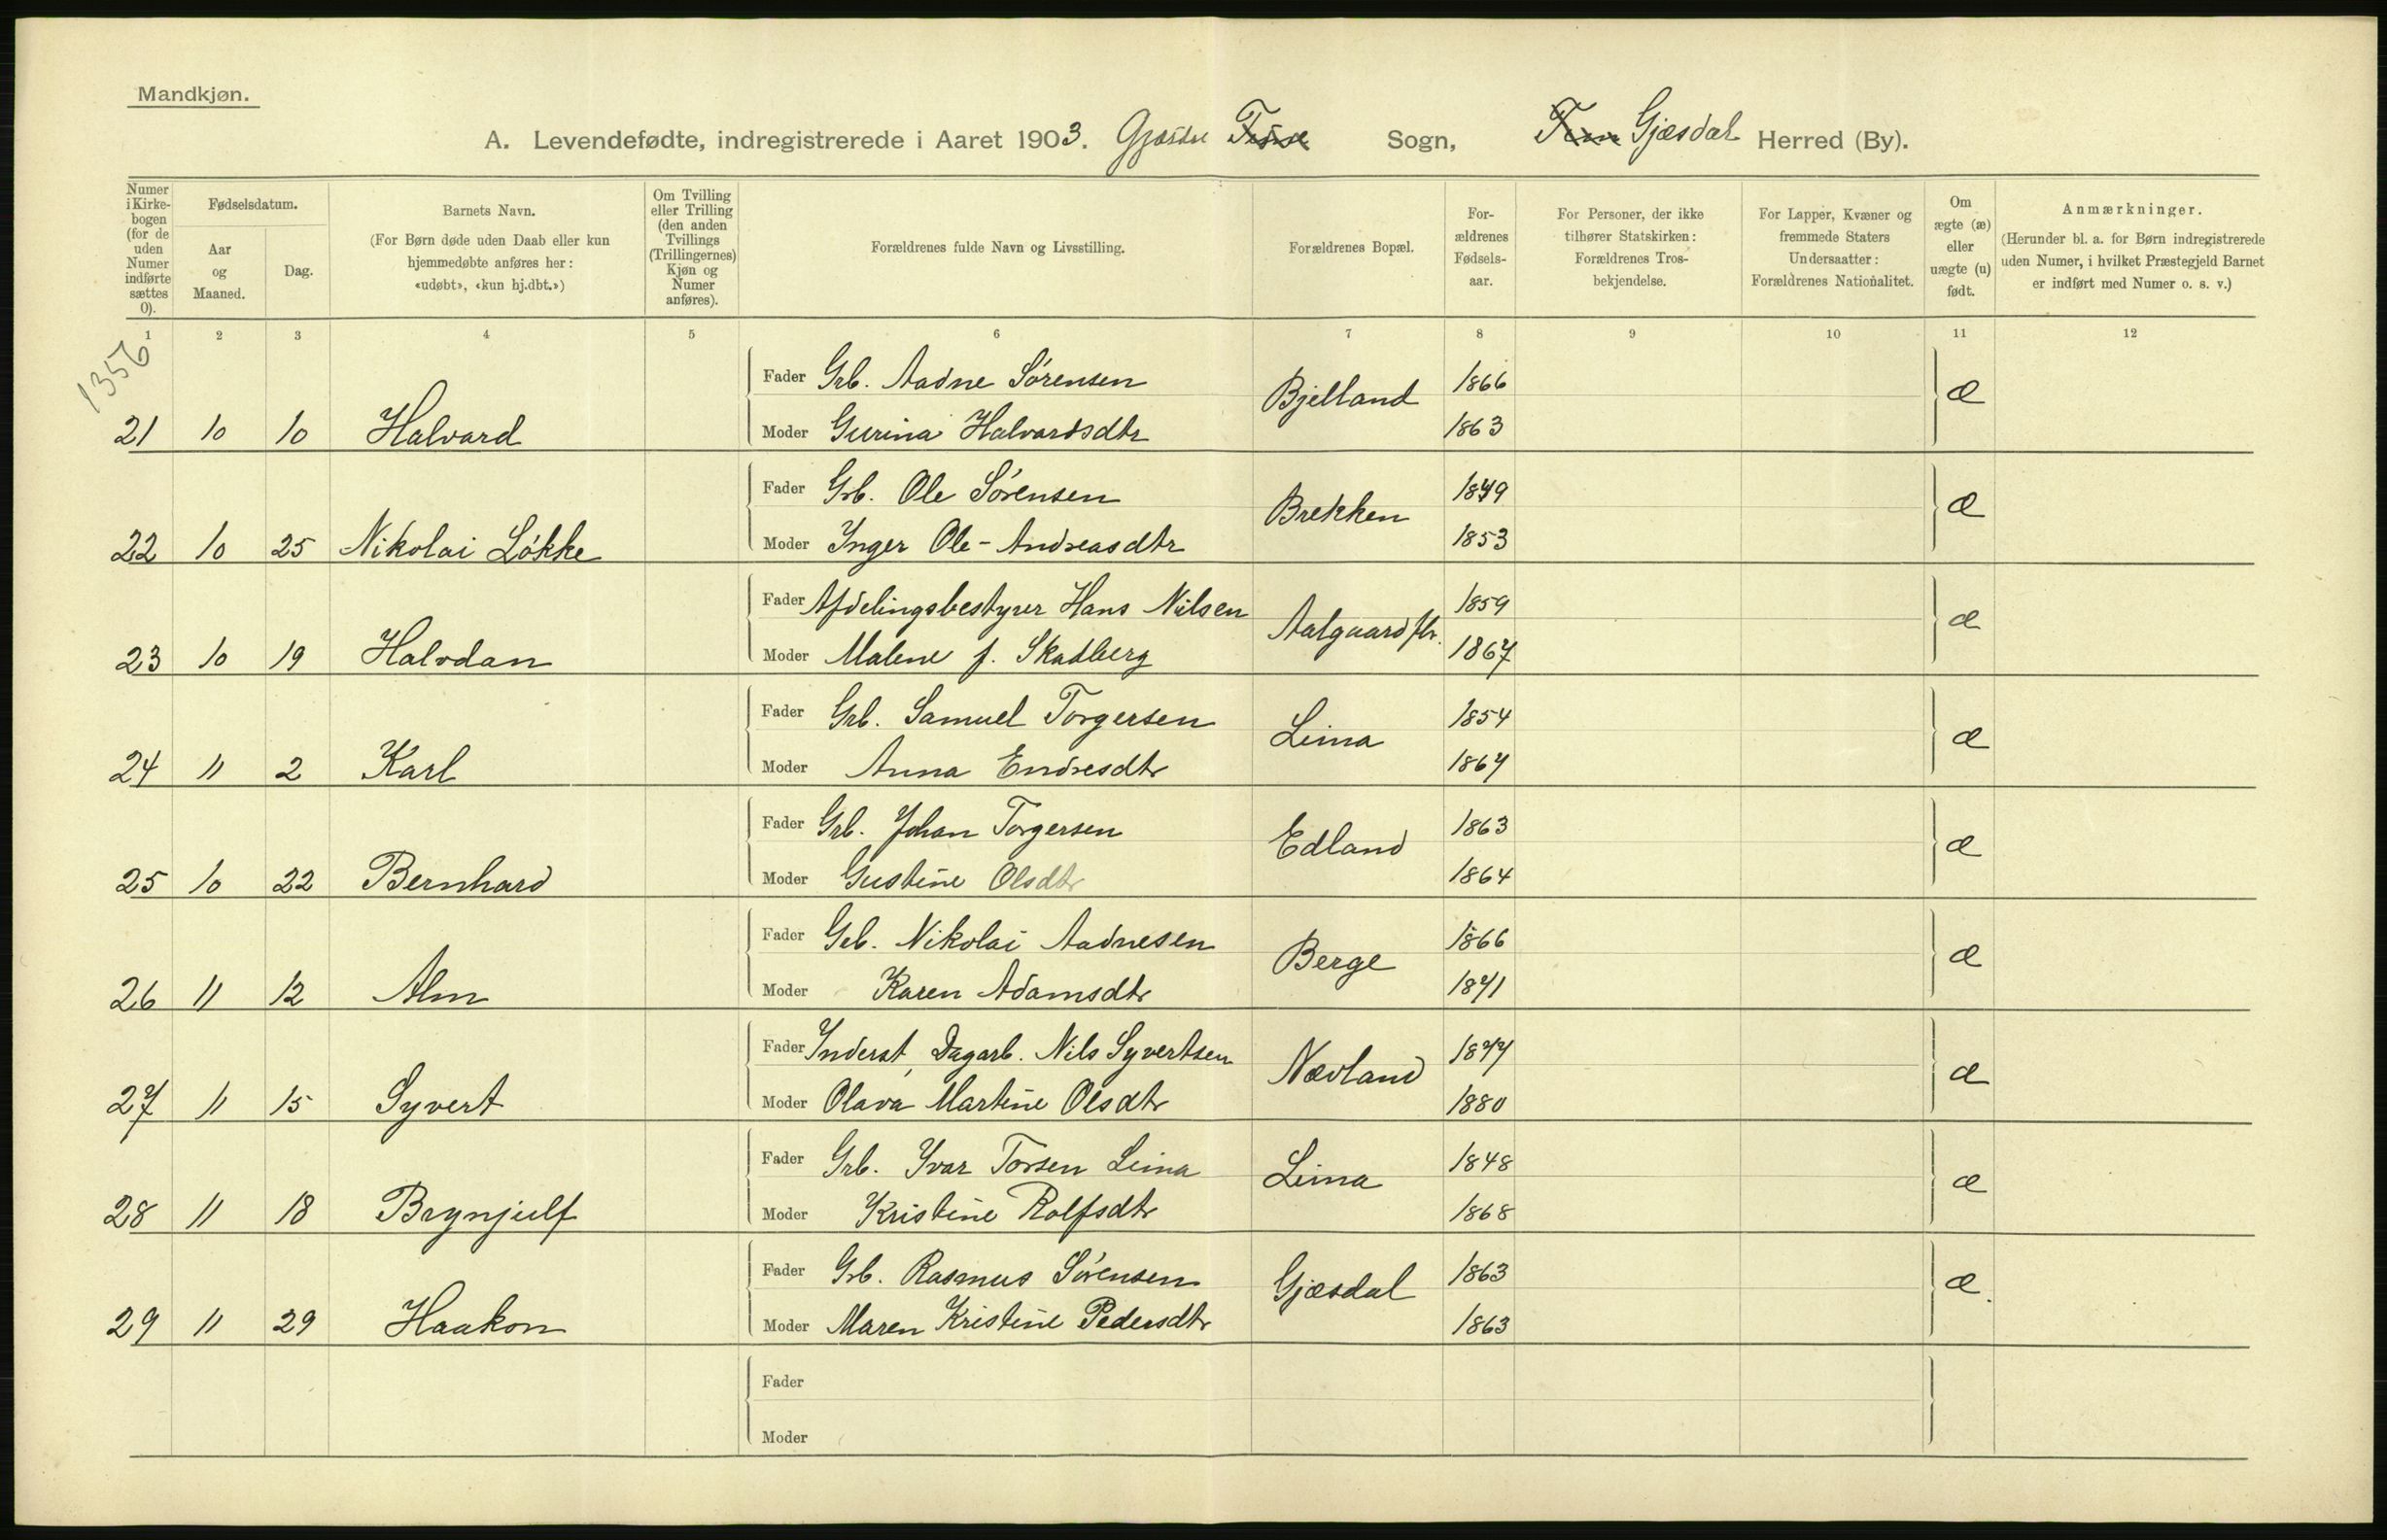 Mandkjøn.
A. Levendefødte, indregistrerede i Aaret 1903. Gjæsdal Sogn, Gjæsdal Herred (By).
Numer i Kirkebogen (for de uden Numer indførte sættes 0).
Fødselsdatum.
Aar og Maaned.
Dag.
Barnets Navn.
(For Børn døde uden Daab eller kun hjemmedøbte anføres her: «udøbt», «kun hj.dbt.»)
Om Tvilling eller Trilling (den anden Tvillings (Trillingernes) Kjøn og Numer anføres).
Forældrenes fulde Navn og Livsstilling.
Forældrenes Bopæl.
Forældrenes Fødselsaar.
For Personer, der ikke tilhører Statskirken: Forældrenes Trosbekjendelse.
For Lapper, Kvæner og fremmede Staters Undersaatter: Forældrenes Nationalitet.
Om ægte (æ) eller uægte (u) født.
Anmærkninger.
(Herunder bl. a. for Børn indregistrerede uden Numer, i hvilket Præstegjeld Barnet er indført med Numer o. s. v.)
1 2 3 4 5 6 7 8 9 10 11 12
1356
Fader Grb. Aadne Sørensen Bjelland 1866 æ
21 10 10 Halvard Moder Gurina Halvardsdtr 1863
Fader Grb. Ole Sørensen Brekken 1849 æ
22 10 25 Nikolai Løkke Moder Inger Ole-Andreasdtr 1853
Fader Afdelingsbestyrer Hans Nilsen Aalgaard fbr. 1859 æ
23 10 19 Halvdan Moder Malene f. Skadberg 1867
Fader Grb. Samuel Torgersen Lima 1854 æ
24 11 2 Karl Moder Anna Endresdtr 1867
Fader Grb. Johan Torgersen Edland 1863 æ
25 10 22 Bernhard Moder Gustine Olsdtr 1864
Fader Grb. Nikolai Aadnesen Berge 1866 æ
26 11 12 Alm Moder Karen Adamsdtr 1871
Fader Inderst, Dagarb. Nils Syvertsen Nævland 1877 æ
27 11 15 Syvert Moder Olava Martine Olsdtr 1880
Fader Grb. Ivar Torsen Lima Lima 1848 æ
28 11 18 Brynjulf Moder Kristine Rolfsdtr 1868
Fader Grb. Rasmus Sørensen Gjæsdal 1863 æ.
29 11 29 Haakon Moder Maren Kristine Pedersdtr 1863
Fader
Moder